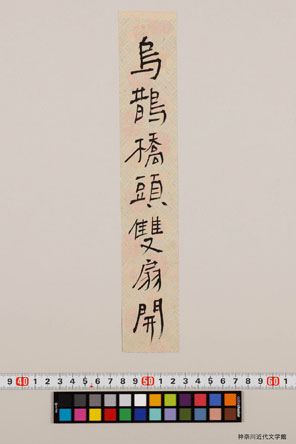 烏鵲橋頭雙扇開
9 40 1 2 3 4 5 6 7 8 9 50 1 2 3 4 5 6 7 8 9 60 1
神奈川近代文学館